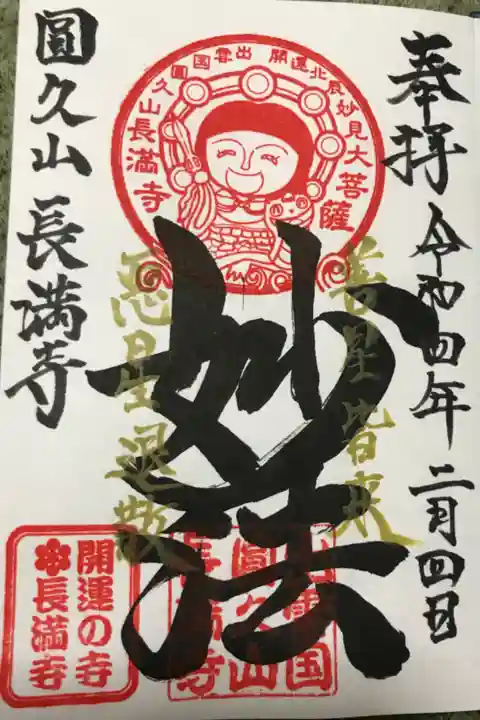 奉拝 令和四年 二月四日
出雲国 開運北辰妙見大菩薩
圓久山長満寺
善星皆来
妙法
悪星退散
圓久山 長満寺
出雲国
圓久山
長満寺
開運の寺
長満寺